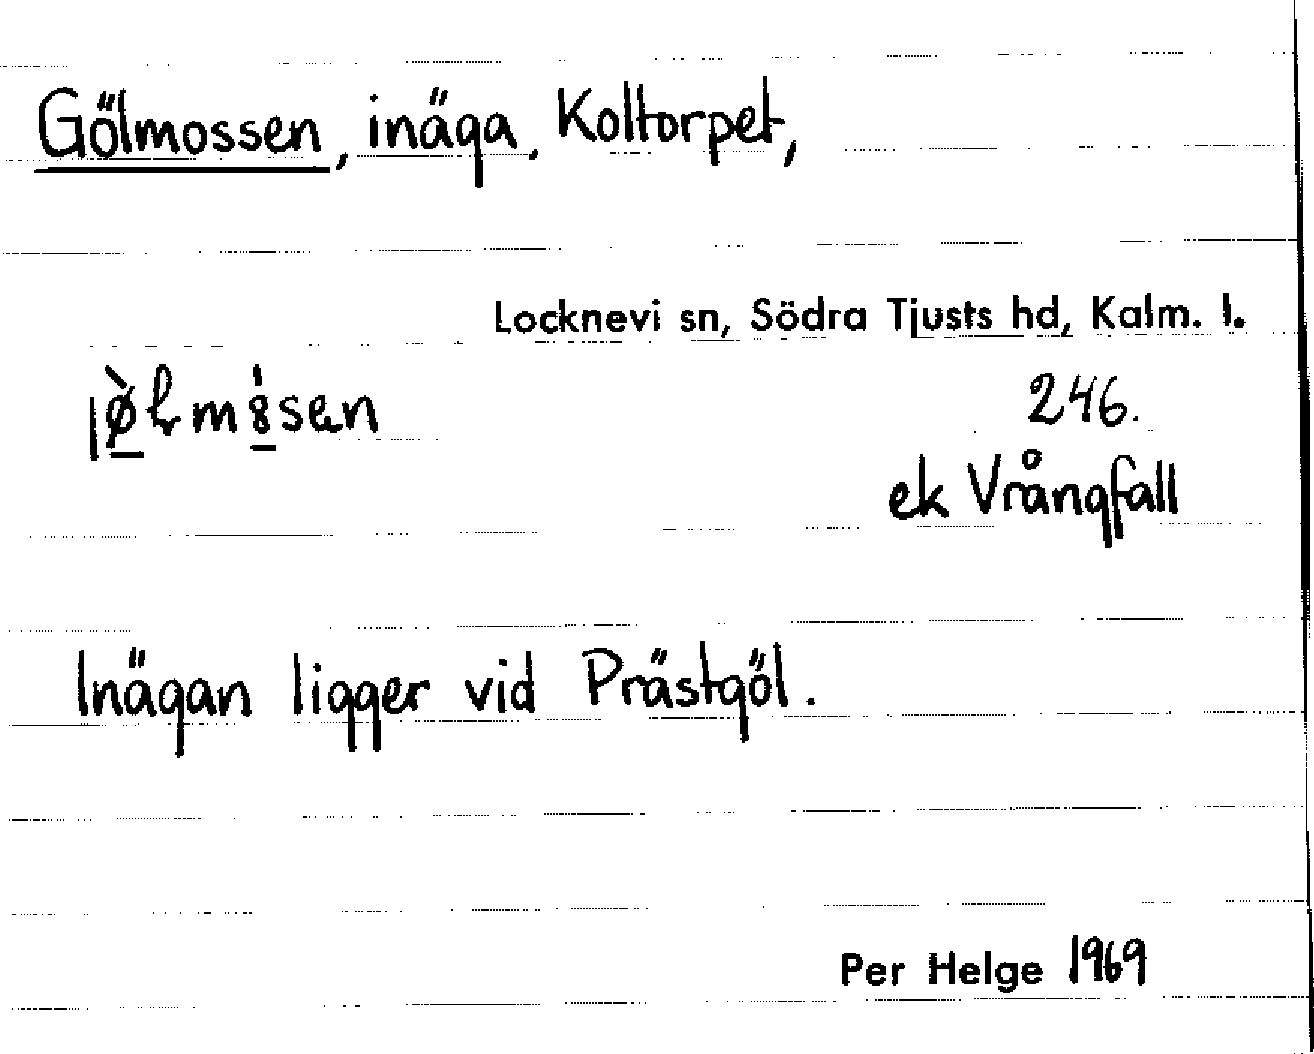 Gölmossen, inäga, Koltorpet,
Locknevi sn, Södra Tjusts hd, Kalm. l.
246.
ek Vrångfall
Inägan ligger vid Prästgöl.
Per Helge 1969